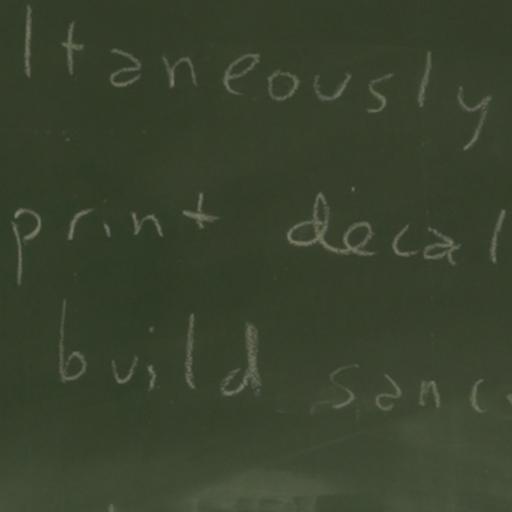 ltaneously
print decal
build sanc